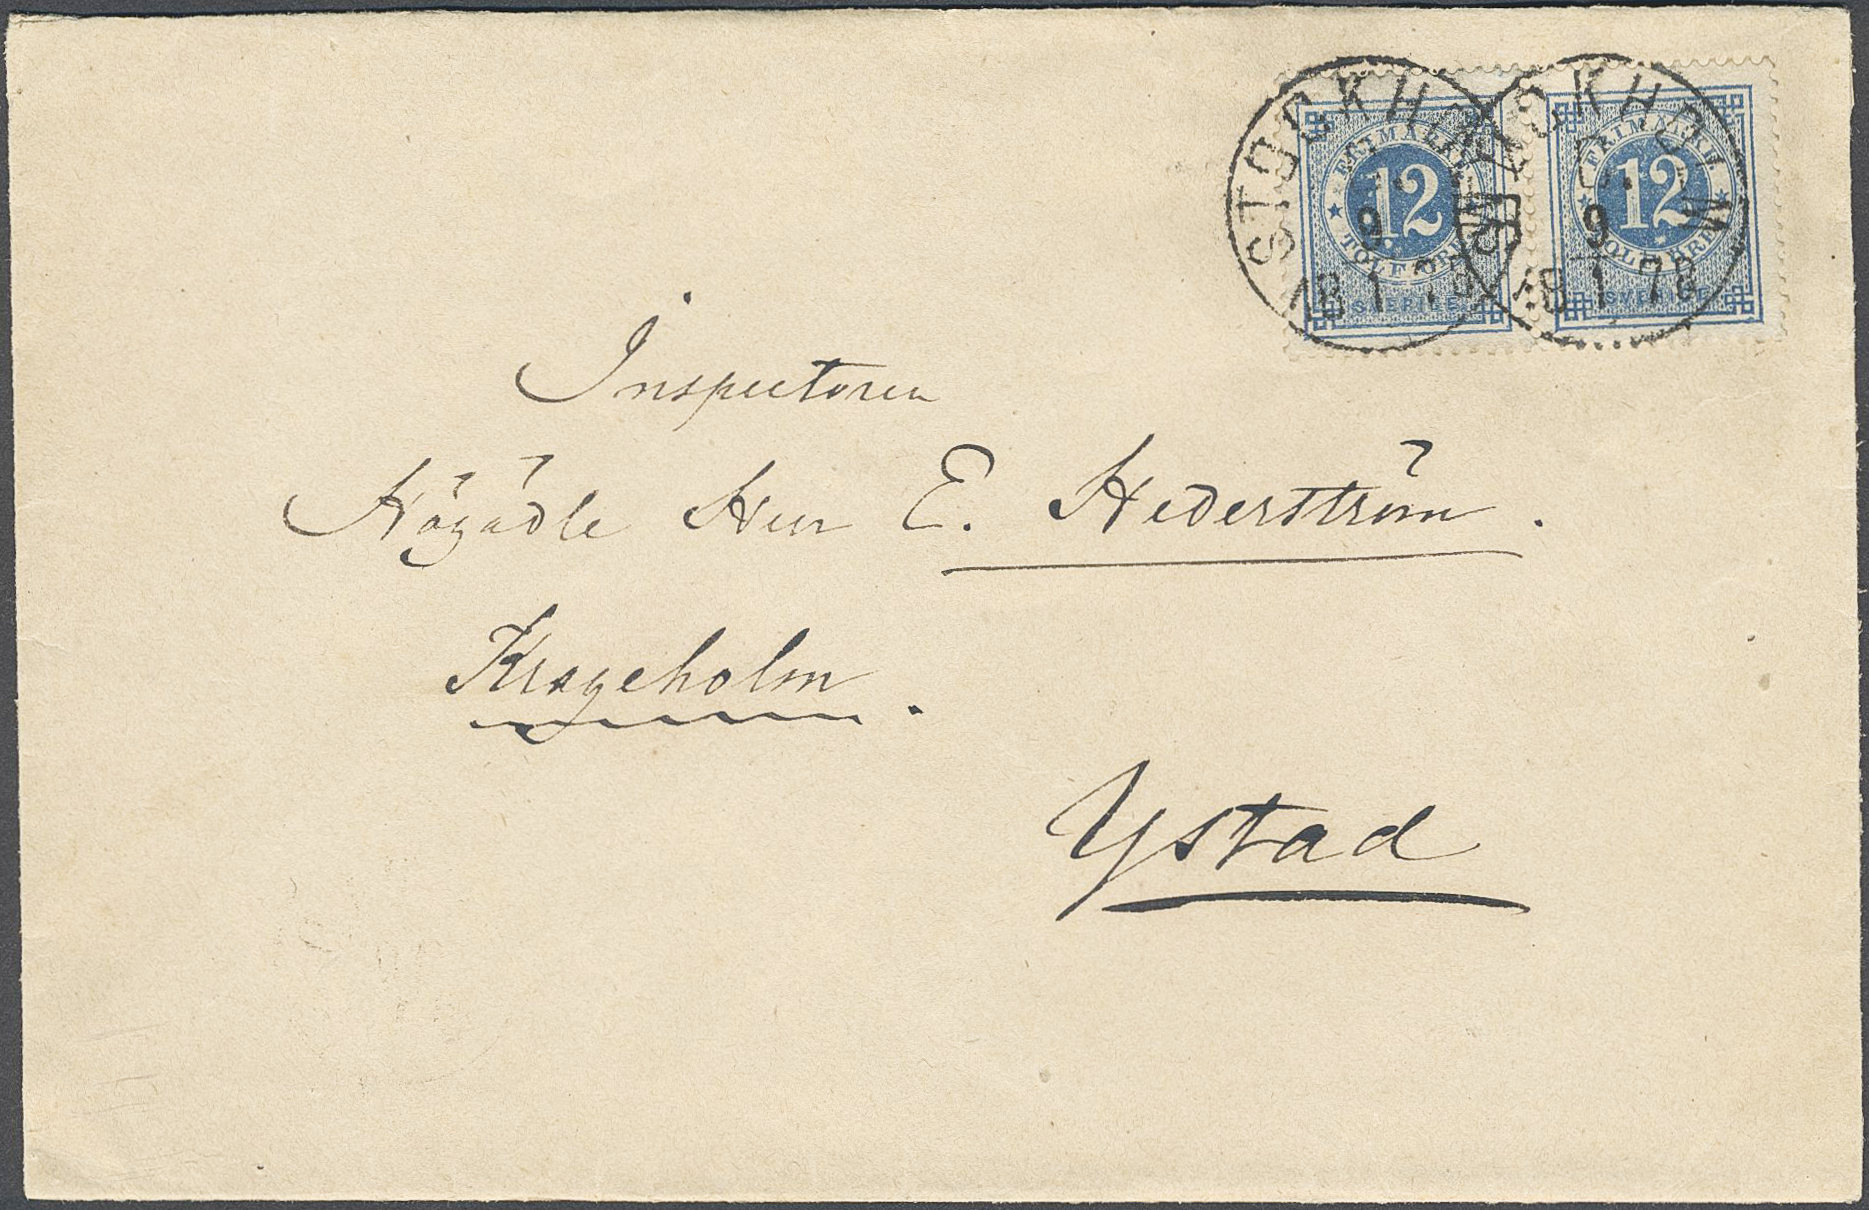 STOCKHOLM
9
18 1 78
FRIMÄRKE
12
TOLF ÖRE
SVERIGE
STOCKHOLM
9
18 1 78
FRIMÄRKE
12
TOLF ÖRE
SVERIGE
Inspectoren
Högädle Herr E. Hederström.
Krageholm.
Ystad